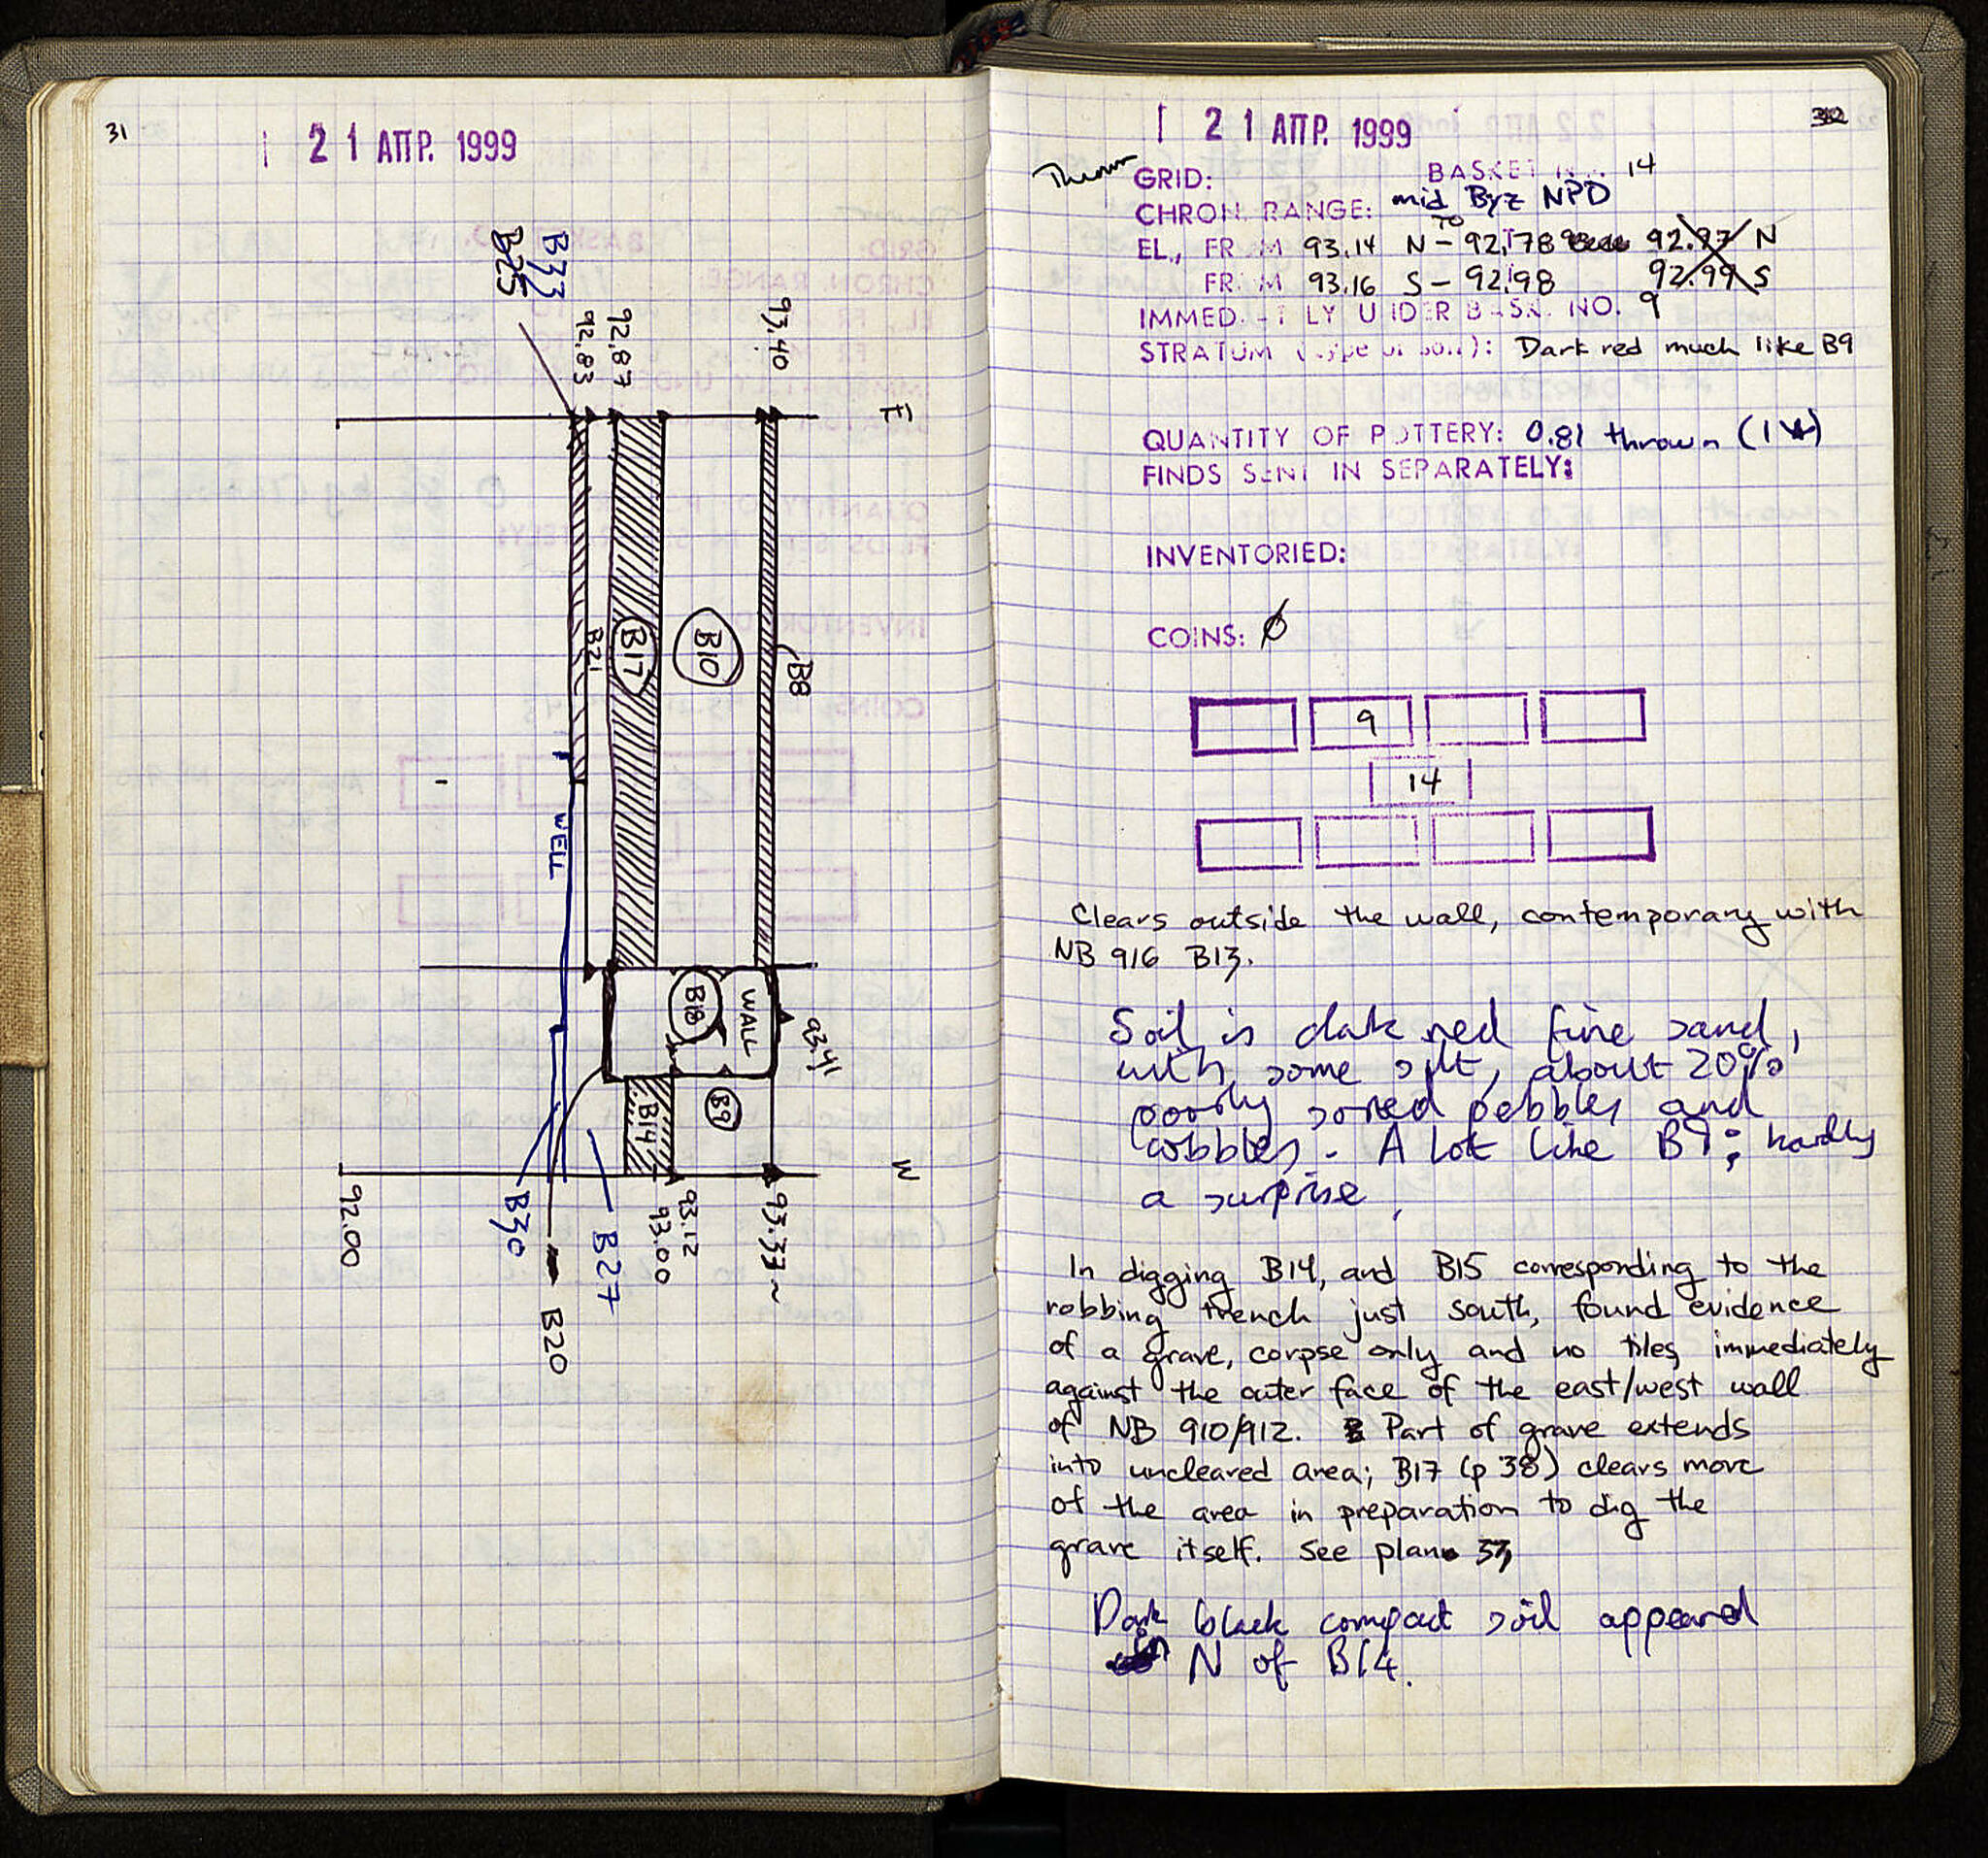 31
21 ΑΠΡ. 1999
B33
B25
92.83
92.87
93.40
E
B21
B17
B10
B8
WELL
B18
WALL
93.41
B14
B9
W
92.00
B30
B20
B27
93.00
93.12
93.33~
32
21 ΑΠΡ. 1999
Thrown GRID: BASKET NO. 14
CHRON. RANGE: mid Byz NPD
EL., FROM 93.14 N – TO 92.78 92.97 N
FROM 93.16 S – 92.98 92.99 S
IMMEDIATELY UNDER BASK. NO. 9
STRATUM (type of soil): Dark red much like B9
QUANTITY OF POTTERY: 0.81 thrown
FINDS SENT IN SEPARATELY:
INVENTORIED:
COINS: Ø
9
14
Clears outside the wall, contemporary with
NB 916 B13.
Soil is dark red fine sand,
with some silt, about 20%
poorly sorted pebbles and
cobbles. A lot like B9; hardly
a surprise.
In digging B14, and B15 corresponding to the
robbing trench just south, found evidence
of a grave, corpse only and no tiles, immediately
against the outer face of the east/west wall
of NB 910/912. Part of grave extends
into uncleared area; B17 (p 38) clears more
of the area in preparation to dig the
grave itself. See plan
Dark black compact soil appeared
in N of B14.